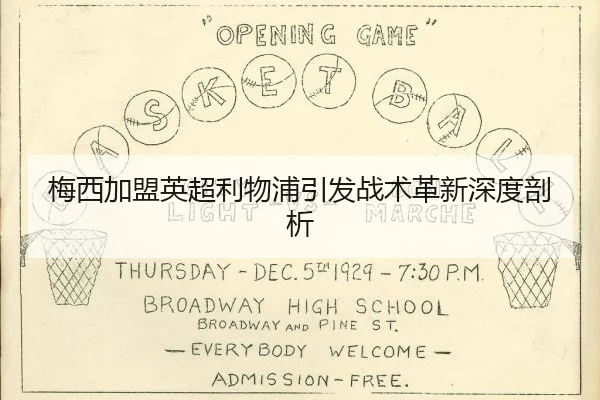 "OPENING GAME"
BASKET BALL
梅西加盟英超利物浦引发战术革新深度剖
析
LIGHT VS. MARCHE
THURSDAY - DEC. 5TH 1929 - 7:30 P.M.
BROADWAY HIGH SCHOOL
BROADWAY AND PINE ST.
- EVERYBODY WELCOME -
ADMISSION - FREE.